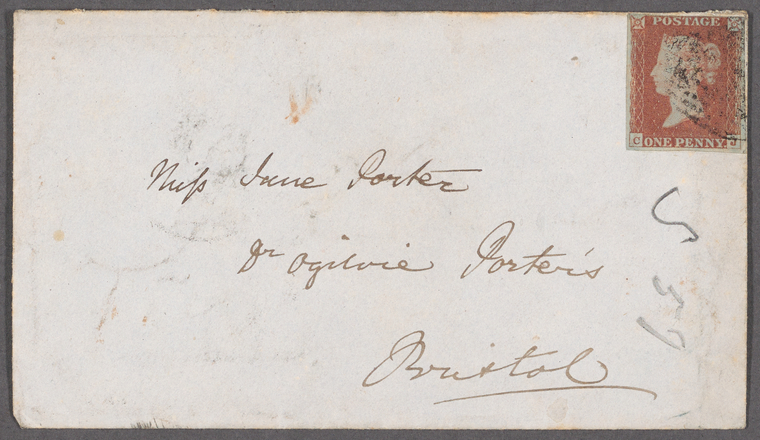 POSTAGE
C ONE PENNY.
Miſs Jane Porter
Dr Ogilvie Porter's
Bristol